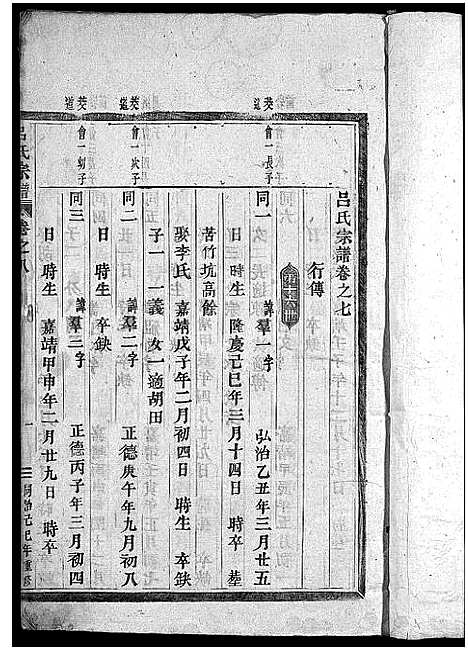 呂氏宗譜卷之七
行傳
葵道 會一長子
同一 諱羣一 字 弘治乙丑年三月廿五
日 時生 隆慶己巳年三月十四日 時卒 塟
苦竹坑高餘
娶李氏 嘉靖戊子年二月初四日 時生 卒缺
子一 一義 女一適胡田
葵道 會一次子
同二 諱羣二 字 正德庚午年九月初八
日 時生 卒缺
葵道 會一幼子
同三 諱羣三 字 正德丙子年三月初四
日 時生 嘉靖甲申年二月廿九日 時卒
呂氏宗譜 卷之八 一 年重修